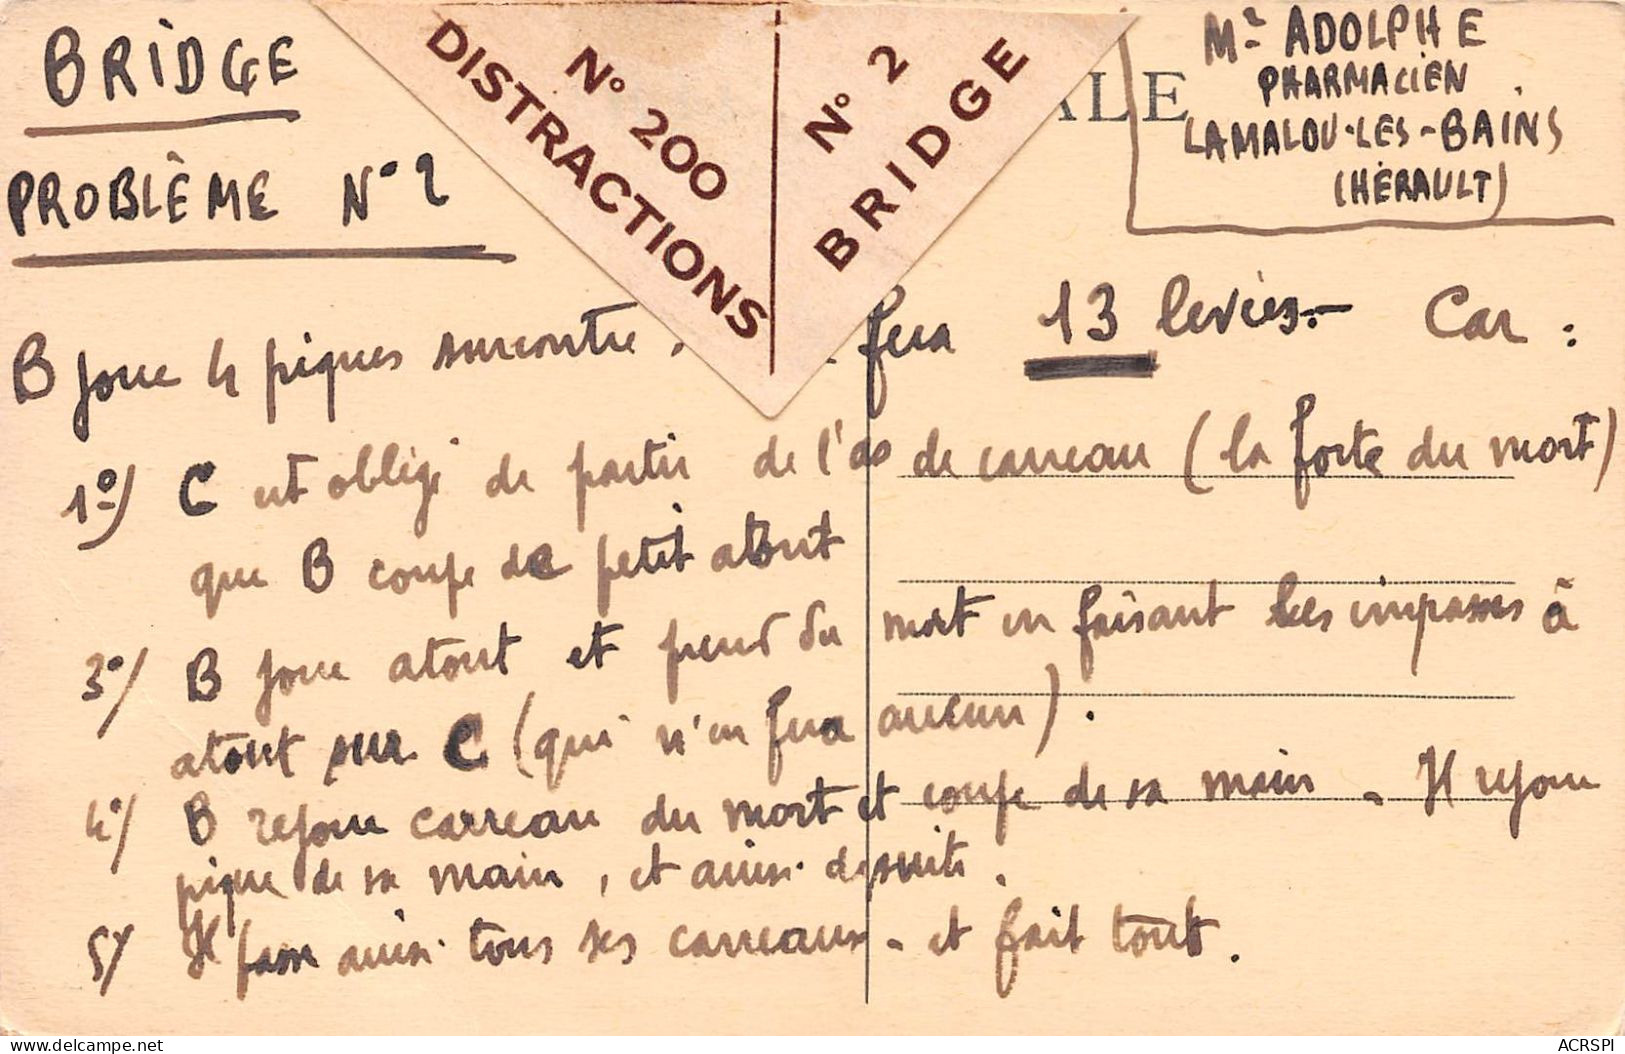 BRIDGE
PROBLÈME N° 2
N° 200
DISTRACTIONS
N° 2
BRIDGE
ALE
Mr ADOLPHE
PHARMACIEN
LAMALOU-LES-BAINS
(HÉRAULT)
B joue 4 piques surcontré . fera 13 levées.- Car :
1°/ C est obligé de partir de l'as de carreau (la forte du mort)
que B coupe de petit atout
3°/ B joue atout et prend du mort en faisant les impasses à
atout sur C (qui n'en fera aucun).
4°/ B rejoue carreau du mort et coupe de sa main - Il rejoue
pique de sa main, et ainsi de suite.
5°/ Il passe ainsi tous ses carreaux - et fait tout.
delcampe.net
ACRSPI